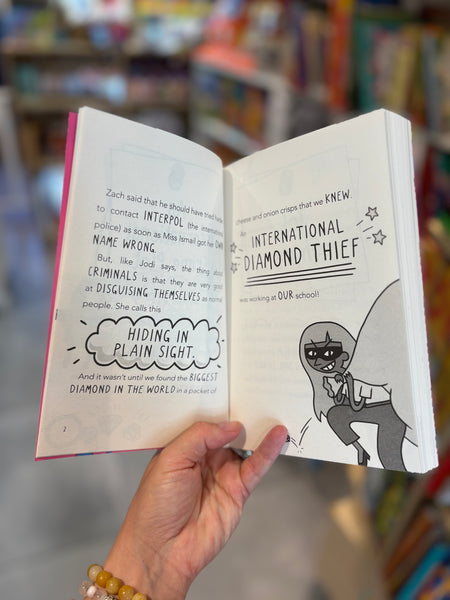 Zach said that he should have tried harder
to contact INTERPOL (the international
police) as soon as Miss Ismail got her OWN
NAME WRONG.
But, like Jodi says, the thing about
CRIMINALS is that they are very good
at DISGUISING THEMSELVES as normal
people. She calls this
HIDING IN
PLAIN SIGHT.
And it wasn't until we found the BIGGEST
DIAMOND IN THE WORLD in a packet of
2
cheese and onion crisps that we KNEW.
INTERNATIONAL
DIAMOND THIEF
was working at OUR school!